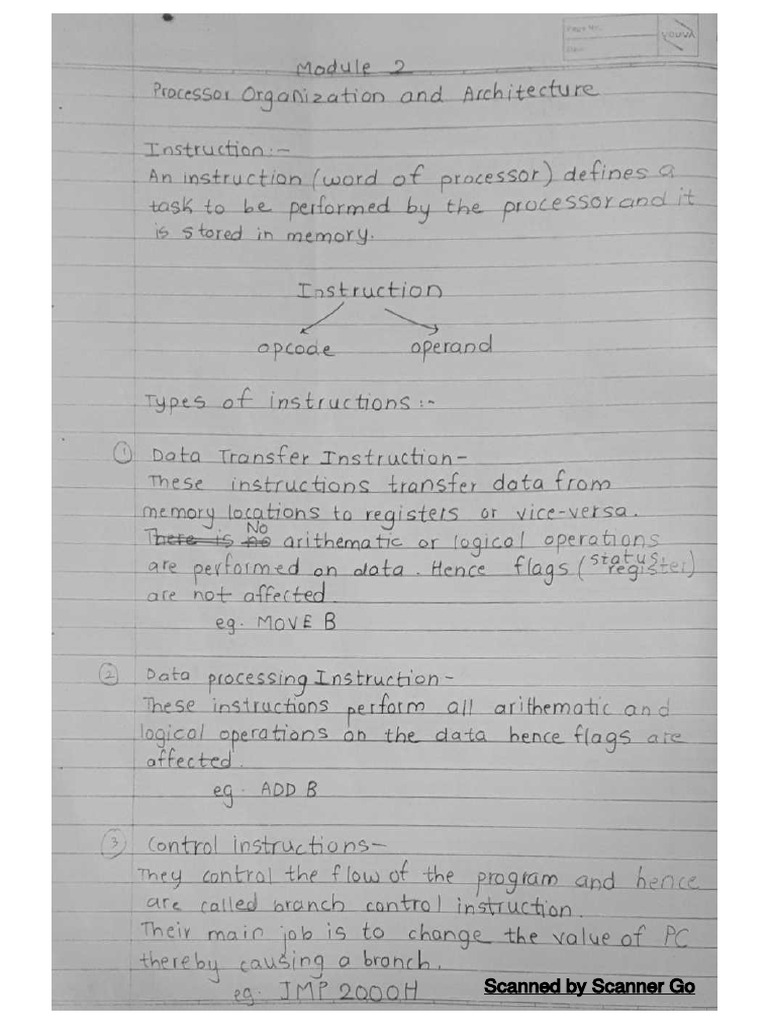 Page No.
Date
YOUVA
Module 2
Processor Organization and Architecture
Instruction:-
An instruction (word of processor) defines a
task to be performed by the processor and it
is stored in memory.
Instruction
opcode operand
Types of instructions :-
1 Data Transfer Instruction-
These instructions transfer data from
memory locations to registers or vice-versa.
There is no No arithematic or logical operations
are performed on data. Hence flags (status register)
are not affected.
eg. MOVE B
2 Data processing Instruction-
These instructions perform all arithematic and
logical operations on the data hence flags are
affected.
eg. ADD B
3 Control instructions-
They control the flow of the program and hence
are called branch control instruction.
Their main job is to change the value of PC
thereby causing a branch.
eg. JMP 2000H
Scanned by Scanner Go